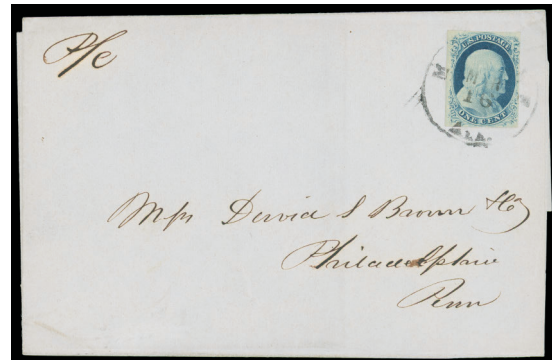 P/c
U.S. POSTAGE
ONE CENT
M
16
ALA
Mess David S Brown & Co
Philadelphia
Penn